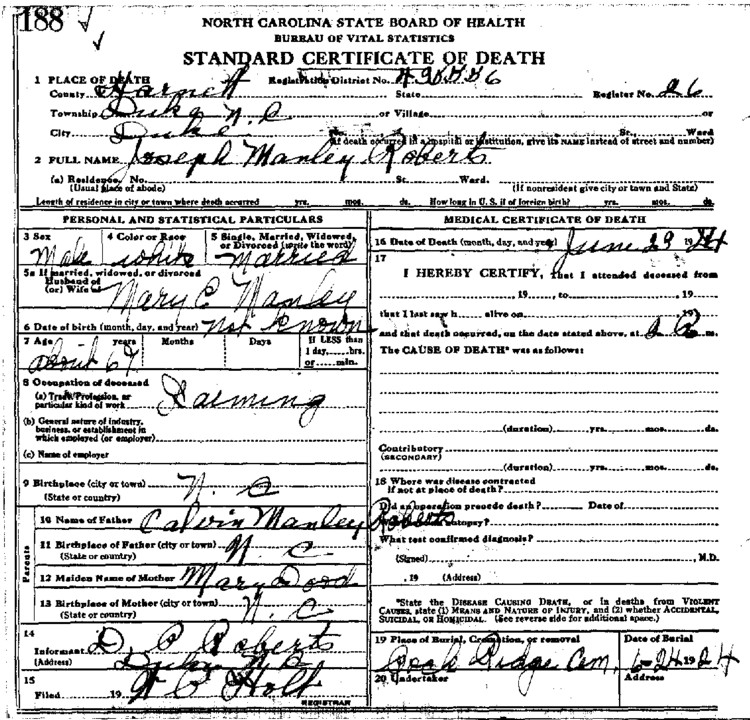 188
NORTH CAROLINA STATE BOARD OF HEALTH
BUREAU OF VITAL STATISTICS
STANDARD CERTIFICATE OF DEATH
1 PLACE OF DEATH Registration District No.
County Harnett State Register No. 26
Township Duke N. C or Village or
City Duke No. St. Ward
(If death occurred in a hospital or institution, give its NAME instead of street and number)
2 FULL NAME Joseph Manley Roberts
(a) Residence. No. St. Ward.
(Usual place of abode) (If nonresident give city or town and State)
Length of residence in city or town where death occurred yrs. mos. ds. How long in U. S. if of foreign birth? yrs. mos. ds.
PERSONAL AND STATISTICAL PARTICULARS
3 Sex 4 Color or Race 5 Single, Married, Widowed, or Divorced (write the word)
Male white Married
5a If married, widowed, or divorced
Husband of
(or) Wife of Mary C Manley
6 Date of birth (month, day, and year) Not known
7 Age years Months Days If LESS than
1 day, hrs.
or min.
about 67
8 Occupation of deceased
(a) Trade, Profession, or
particular kind of work Farming
(b) General nature of industry,
business, or establishment in
which employed (or employer)
(c) Name of employer
9 Birthplace (city or town) N. C
(State or country)
Parents
10 Name of Father Calvin Manley Roberts
11 Birthplace of Father (city or town) N C
(State or country)
12 Maiden Name of Mother Mary Dood
13 Birthplace of Mother (city or town) N. C
(State or country)
14
Informant D. P. Roberts
(Address) Duke N C
15
Filed 19 Holt
REGISTRAR
MEDICAL CERTIFICATE OF DEATH
16 Date of Death (month, day, and year) June 23 1924
17
I HEREBY CERTIFY, that I attended deceased from
, 19 , to , 19
that I last saw h alive on , 19
and that death occurred, on the date stated above, at m.
The CAUSE OF DEATH* was as follows:
(duration) yrs. mos. ds.
Contributory
(SECONDARY)
(duration) yrs. mos. ds.
18 Where was disease contracted
if not at place of death?
Did an operation precede death? Date of
Was there an autopsy?
What test confirmed diagnosis?
(Signed) , M.D.
, 19 (Address)
*State the DISEASE CAUSING DEATH, or in deaths from VIOLENT
CAUSES, state (1) MEANS AND NATURE OF INJURY, and (2) whether ACCIDENTAL,
SUICIDAL, OR HOMICIDAL. (See reverse side for additional space.)
19 Place of Burial, Cremation, or removal Date of Burial
Ridge Cem, 6-24 1924
20 Undertaker Address